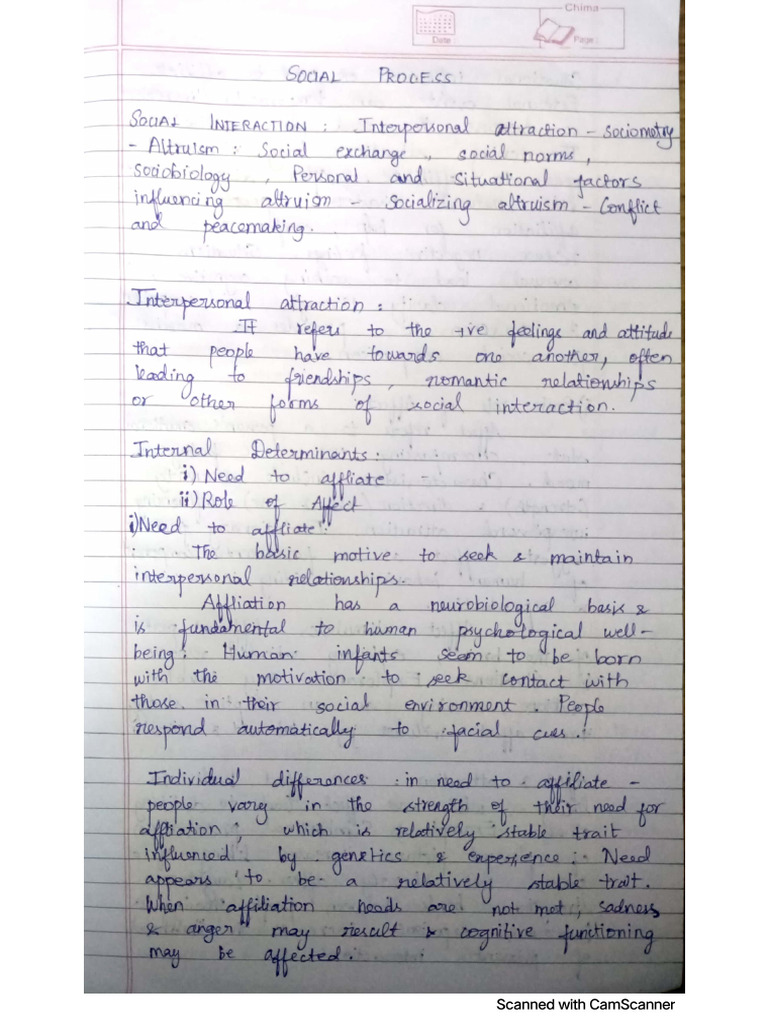 China
Date :
Page :
SOCIAL PROCESS:
SOCIAL INTERACTION : Interpersonal attraction - Sociometry
- Altruism : Social exchange , social norms ,
sociobiology , Personal and Situational factors
influencing altruism - Socializing altruism - Conflict
and peacemaking.
Interpersonal attraction :
It refers to the +ve feelings and attitude
that people have towards one another, often
leading to friendships , romantic relationships
or other forms of social interaction.
Internal Determinants :
i) Need to affliate -
ii) Role of Affect
i) Need to affliate :
The basic motive to seek & maintain
interpersonal relationships.
Affliation has a neurobiological basis &
is fundamental to human psychological well-
being. Human infants seem to be born
with the motivation to seek contact with
those in their social environment . People
respond automatically to facial cues.
Individual differences in need to affiliate -
people vary in the strength of their need for
affliation , which is relatively stable trait
influenced by genetics & experience . Need
appears to be a relatively stable trait.
When affiliation needs are not met , sadness
& anger may result & cognitive functioning
may be affected.
Scanned with CamScanner